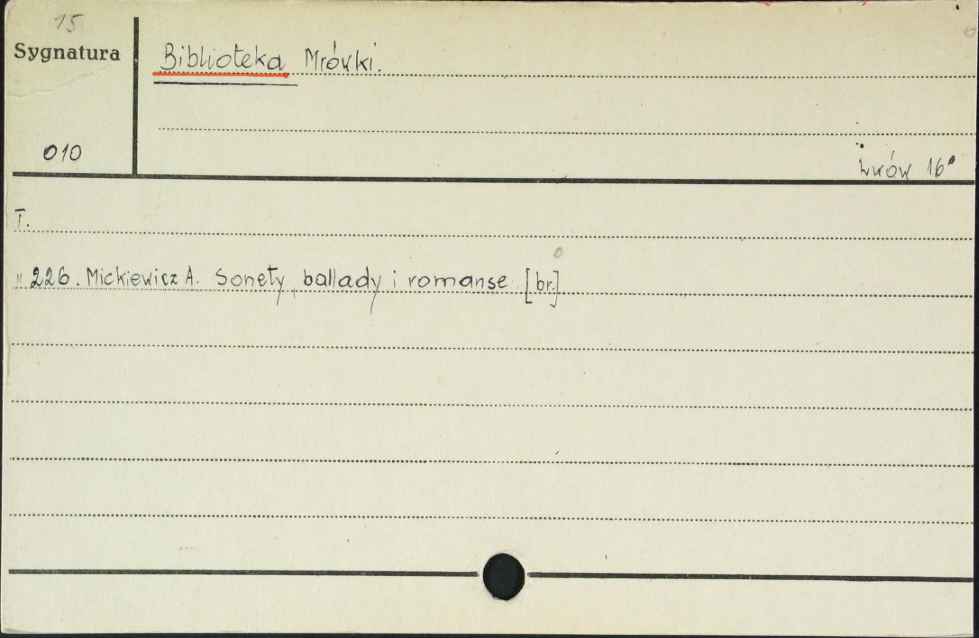 15
Sygnatura
Biblioteka Mrówki.
010
Lwów 16°
T.
" 226. Mickiewicz A. Sonety, ballady i romanse [br.]